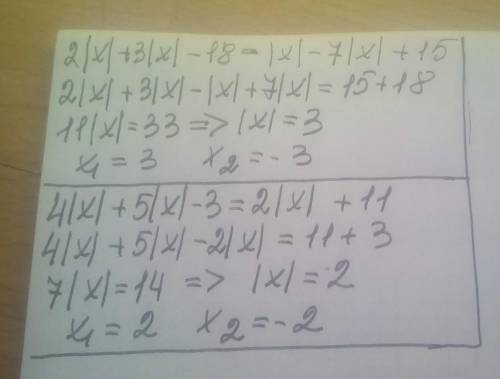 2|x| + 3|x| - 18 = |x| - 7|x| + 15
2|x| + 3|x| - |x| + 7|x| = 15 + 18
11|x| = 33 => |x| = 3
x₁ = 3 x₂ = - 3
4|x| + 5|x| - 3 = 2|x| + 11
4|x| + 5|x| - 2|x| = 11 + 3
7|x| = 14 => |x| = 2
x₁ = 2 x₂ = - 2